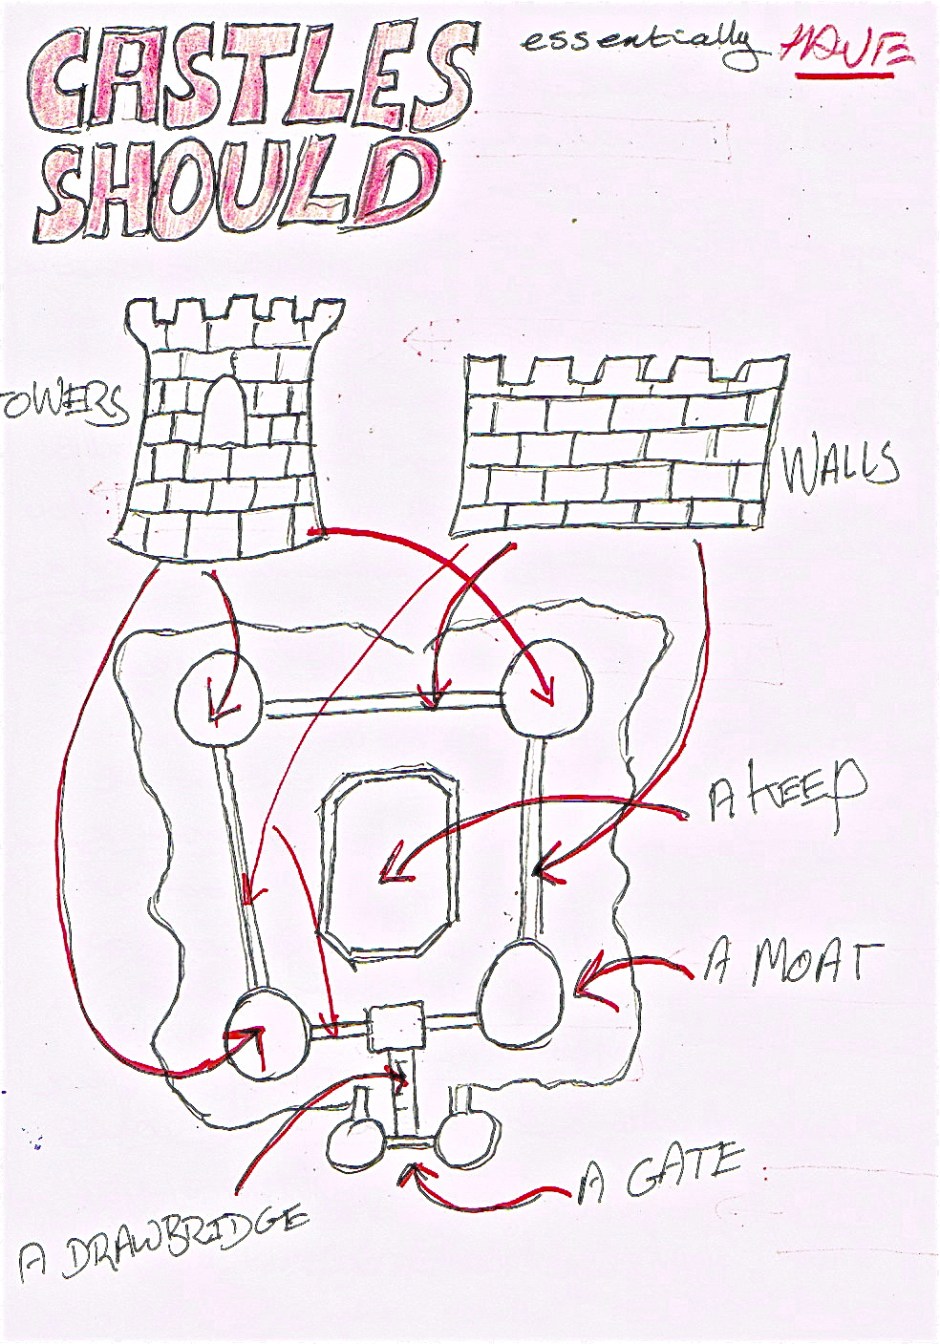 CASTLES essentially HAVE
SHOULD
TOWERS
WALLS
A KEEP
A MOAT
A GATE
A DRAWBRIDGE